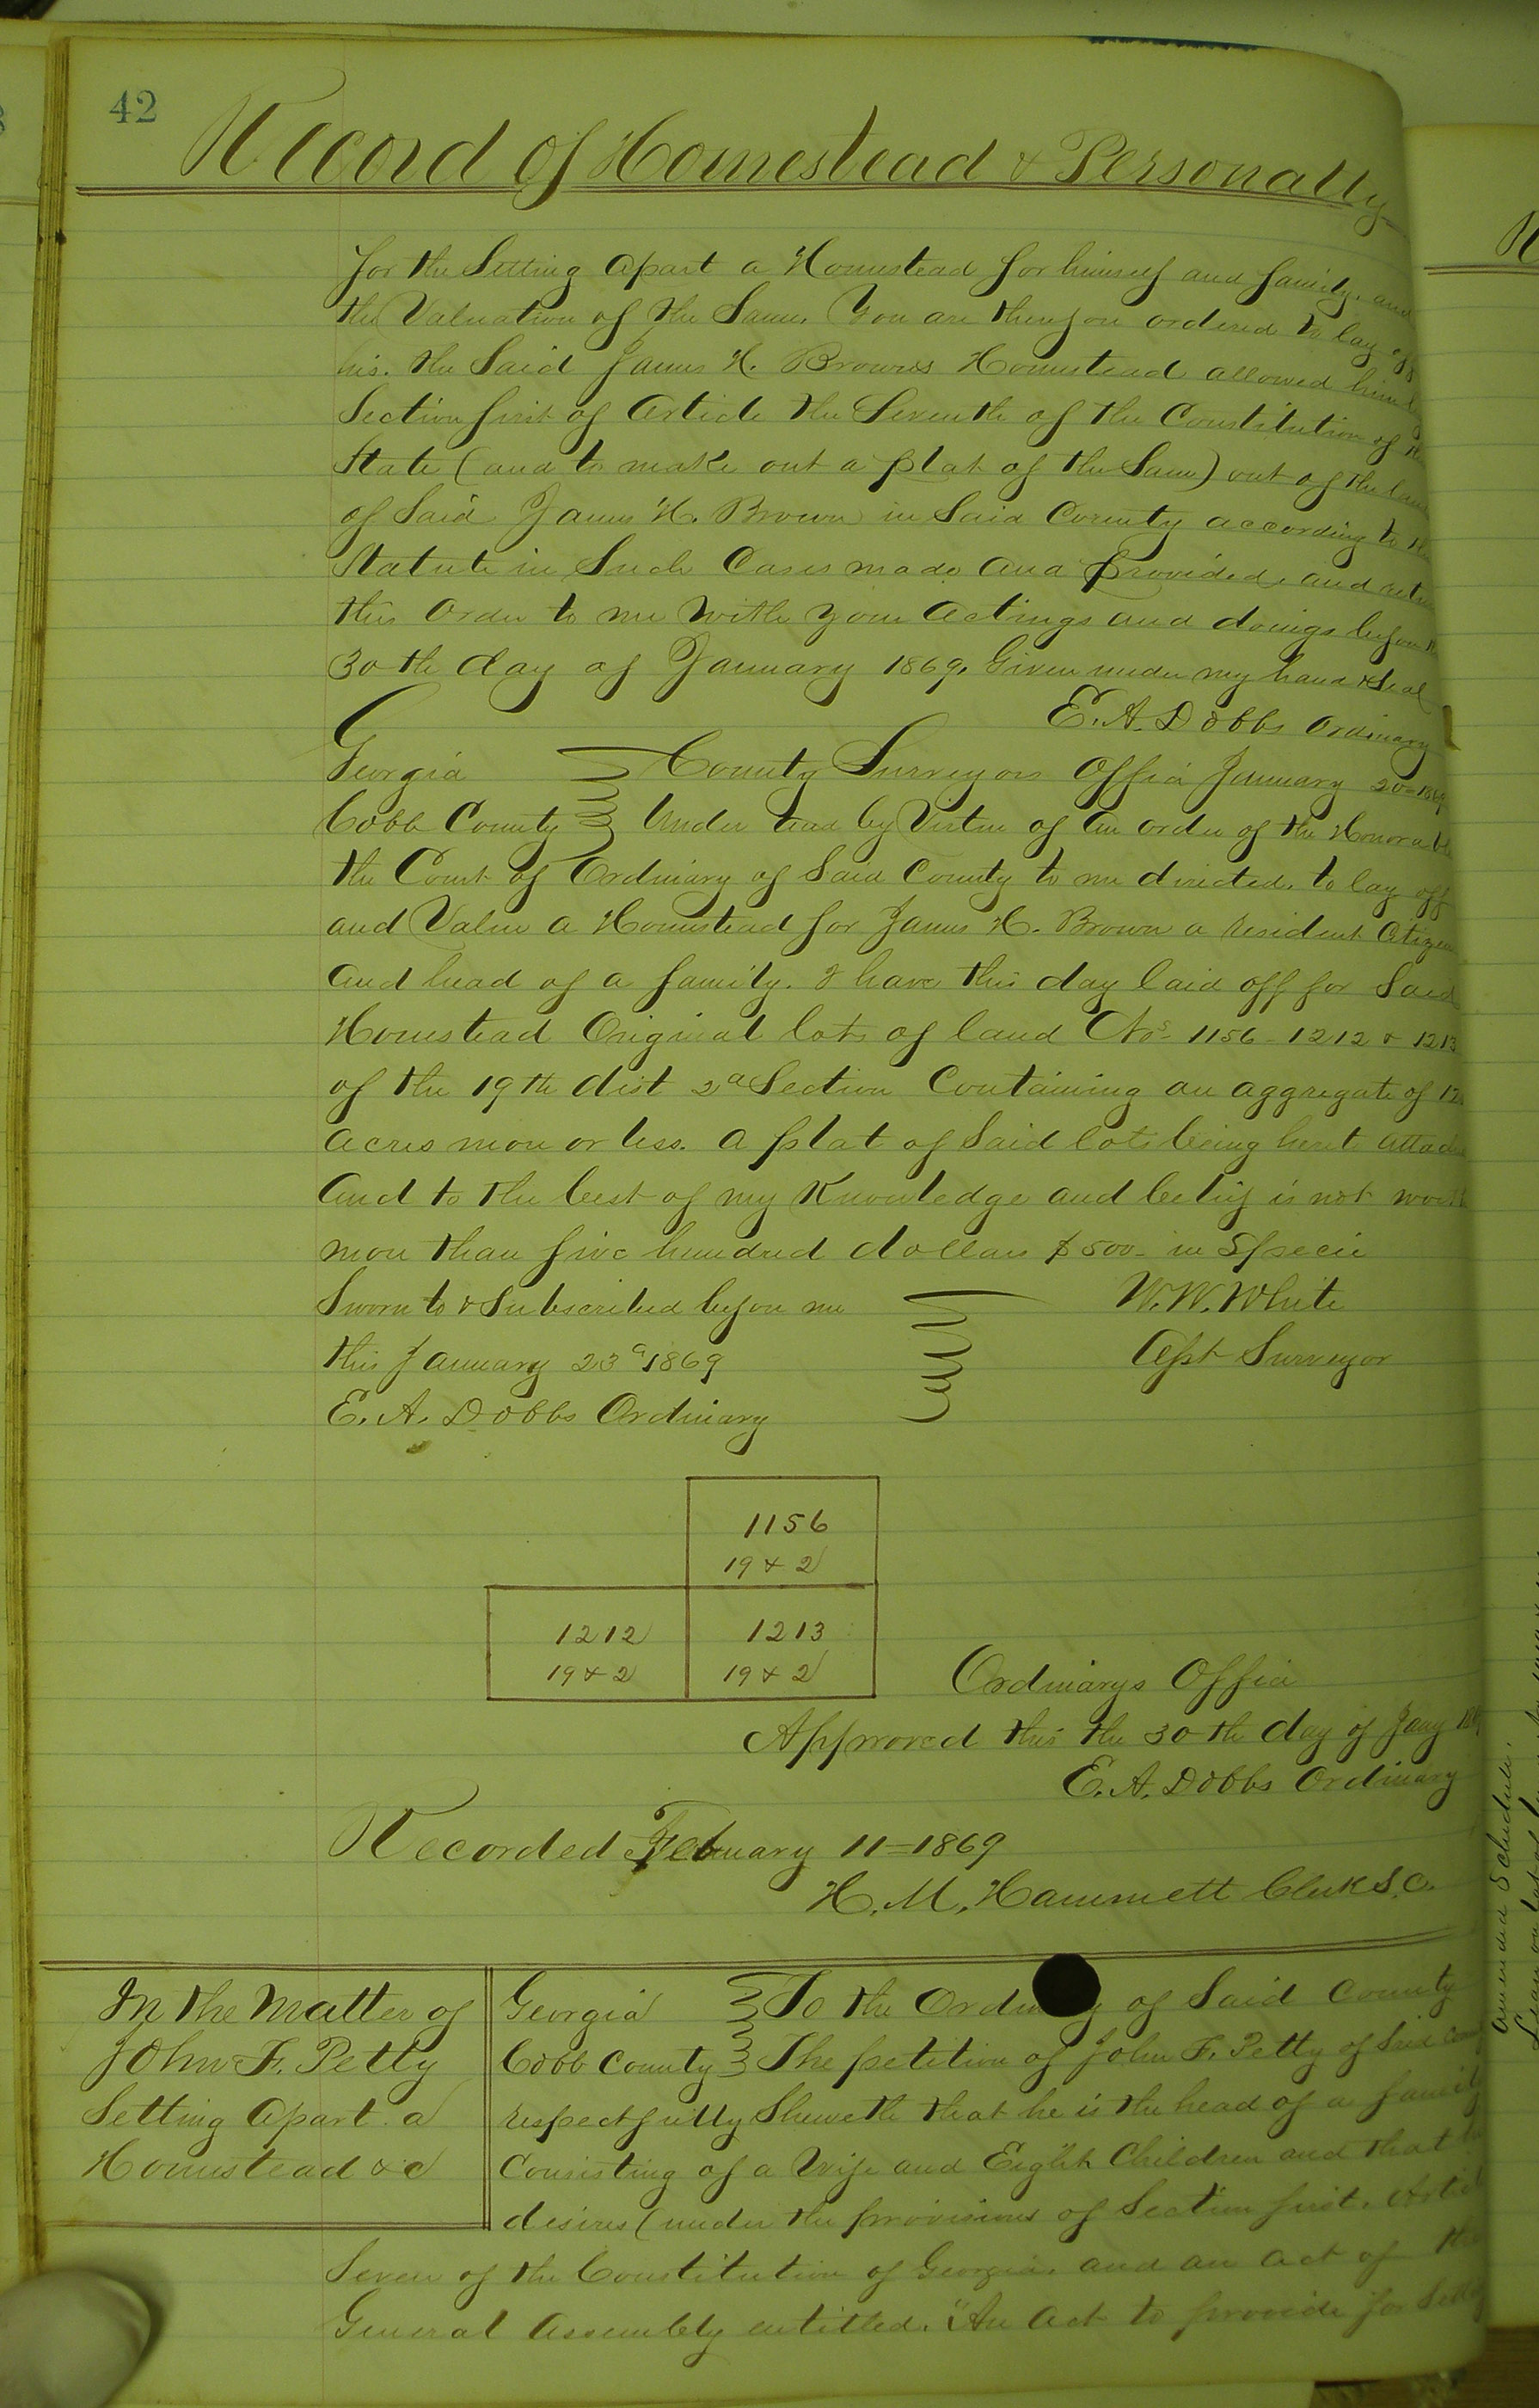 42
Record of Homestead & Personalty
for the Setting apart a Homestead for himself and family, and
the Valuation of the Same. You are therefore ordered to lay off
his. the Said James H. Browns Homestead allowed him by
Section first of Article the Seventh of the Constitution of the
State (and to make out a plat of the Same) out of the land
of Said James H. Brown in Said County according to the
Statute in Such Cases made and Provided, and return
this Order to me with your actings and doings before the
30th day of January 1869. Given under my hand & Seal
E. A. Dobbs Ordinary
Georgia County Surveyors Office January 20=1869
Cobb County Under and by Virtue of an order of the Honorable
the Court of Ordinary of Said County to me directed, to lay off
and Value a Homestead for James H. Brown a resident Citizen
and head of a family. I have this day laid off for Said
Homestead Original lots of land Nos- 1156 - 1212 & 1213
of the 19th dist 2d Section Containing an aggregate of
acres more or less. a plat of Said lots being hereto attach
And to the best of my Knowledge and belief is not worth
more than five hundred dollars $500- in Specie
Sworn to & Subscribed before me W. W. White
this January 23d 1869 Asst Surveyor
E. A. Dobbs Ordinary
1156
19 & 2
1212 1213
19 & 2 19 & 2
Ordinarys Office
Approved this the 30th day of Jany 1869
E. A. Dobbs Ordinary
Recorded February 11=1869
H. M. Hammett Clerk S.C.
In the Matter of
John F. Petty
Setting Apart a
Homestead &c
Georgia To the Ordinary of Said County
Cobb County The petition of John F. Petty of Said
respectfully Sheweth that he is the head of a family
Consisting of a Wife and Eight Children and that he
desires (under the provisions of Section first. Article
Seven of the Constitution of Georgia. and an act of the
General Assembly entitled. "An Act to provide for
amended Schedule.